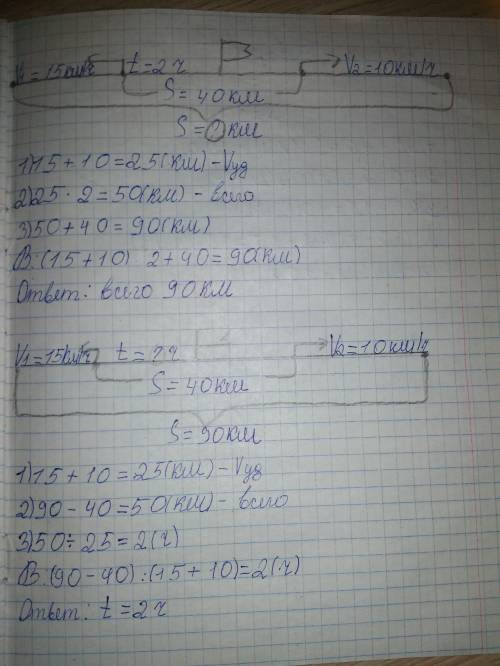 V1 = 15км/ч t = 2 ч V2 = 10км/ч
S = 40 км
S = ? км
1) 15 + 10 = 25(км) - Vуд
2) 25 · 2 = 50(км) - всего
3) 50 + 40 = 90(км)
В: (15 + 10) 2 + 40 = 90(км)
Ответ: всего 90 км
V1 = 15км/ч t = ? ч V2 = 10км/ч
S = 40км
S = 90км
1) 15 + 10 = 25(км) - Vуд
2) 90 - 40 = 50(км) - всего
3) 50 ÷ 25 = 2(ч)
В: (90 - 40) : (15 + 10) = 2(ч)
Ответ: t = 2 ч